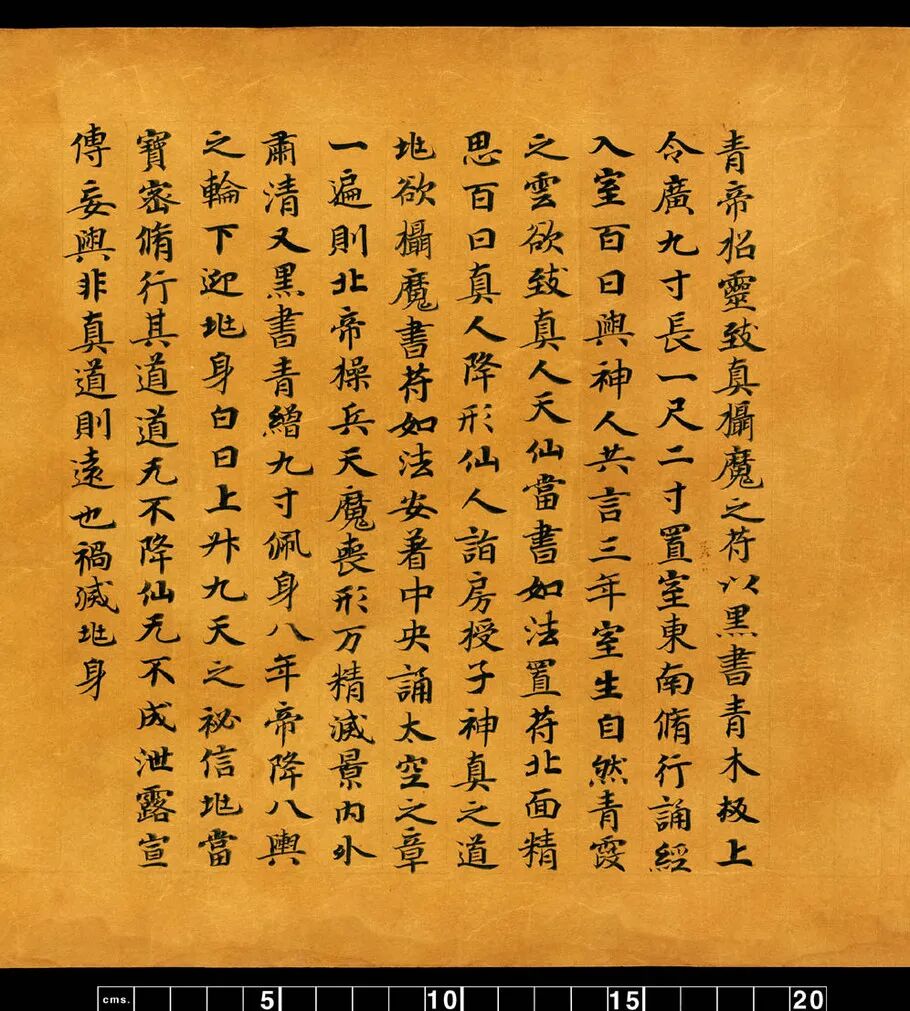 青帝招靈致真攝魔之苻以黒書青木板上
令廣九寸長一尺二寸置室東南脩行誦經
入室百日與神人共言三年室生自然青霞
之雲欲致真人天仙當書如法置苻北面精
思百日真人降形仙人詣房授子神真之道
地欲攝魔書苻如法安著中央誦太空之章
一遍則北帝操兵天魔喪形万精滅景内外
肅清又黒書青繒九寸佩身八年帝降八輿
之輪下迎地身白日上升九天之祕信地當
寶密脩行其道道无不降仙无不成泄露宣
傳妄與非真道則遠也禍滅地身
cms. 5 10 15 20